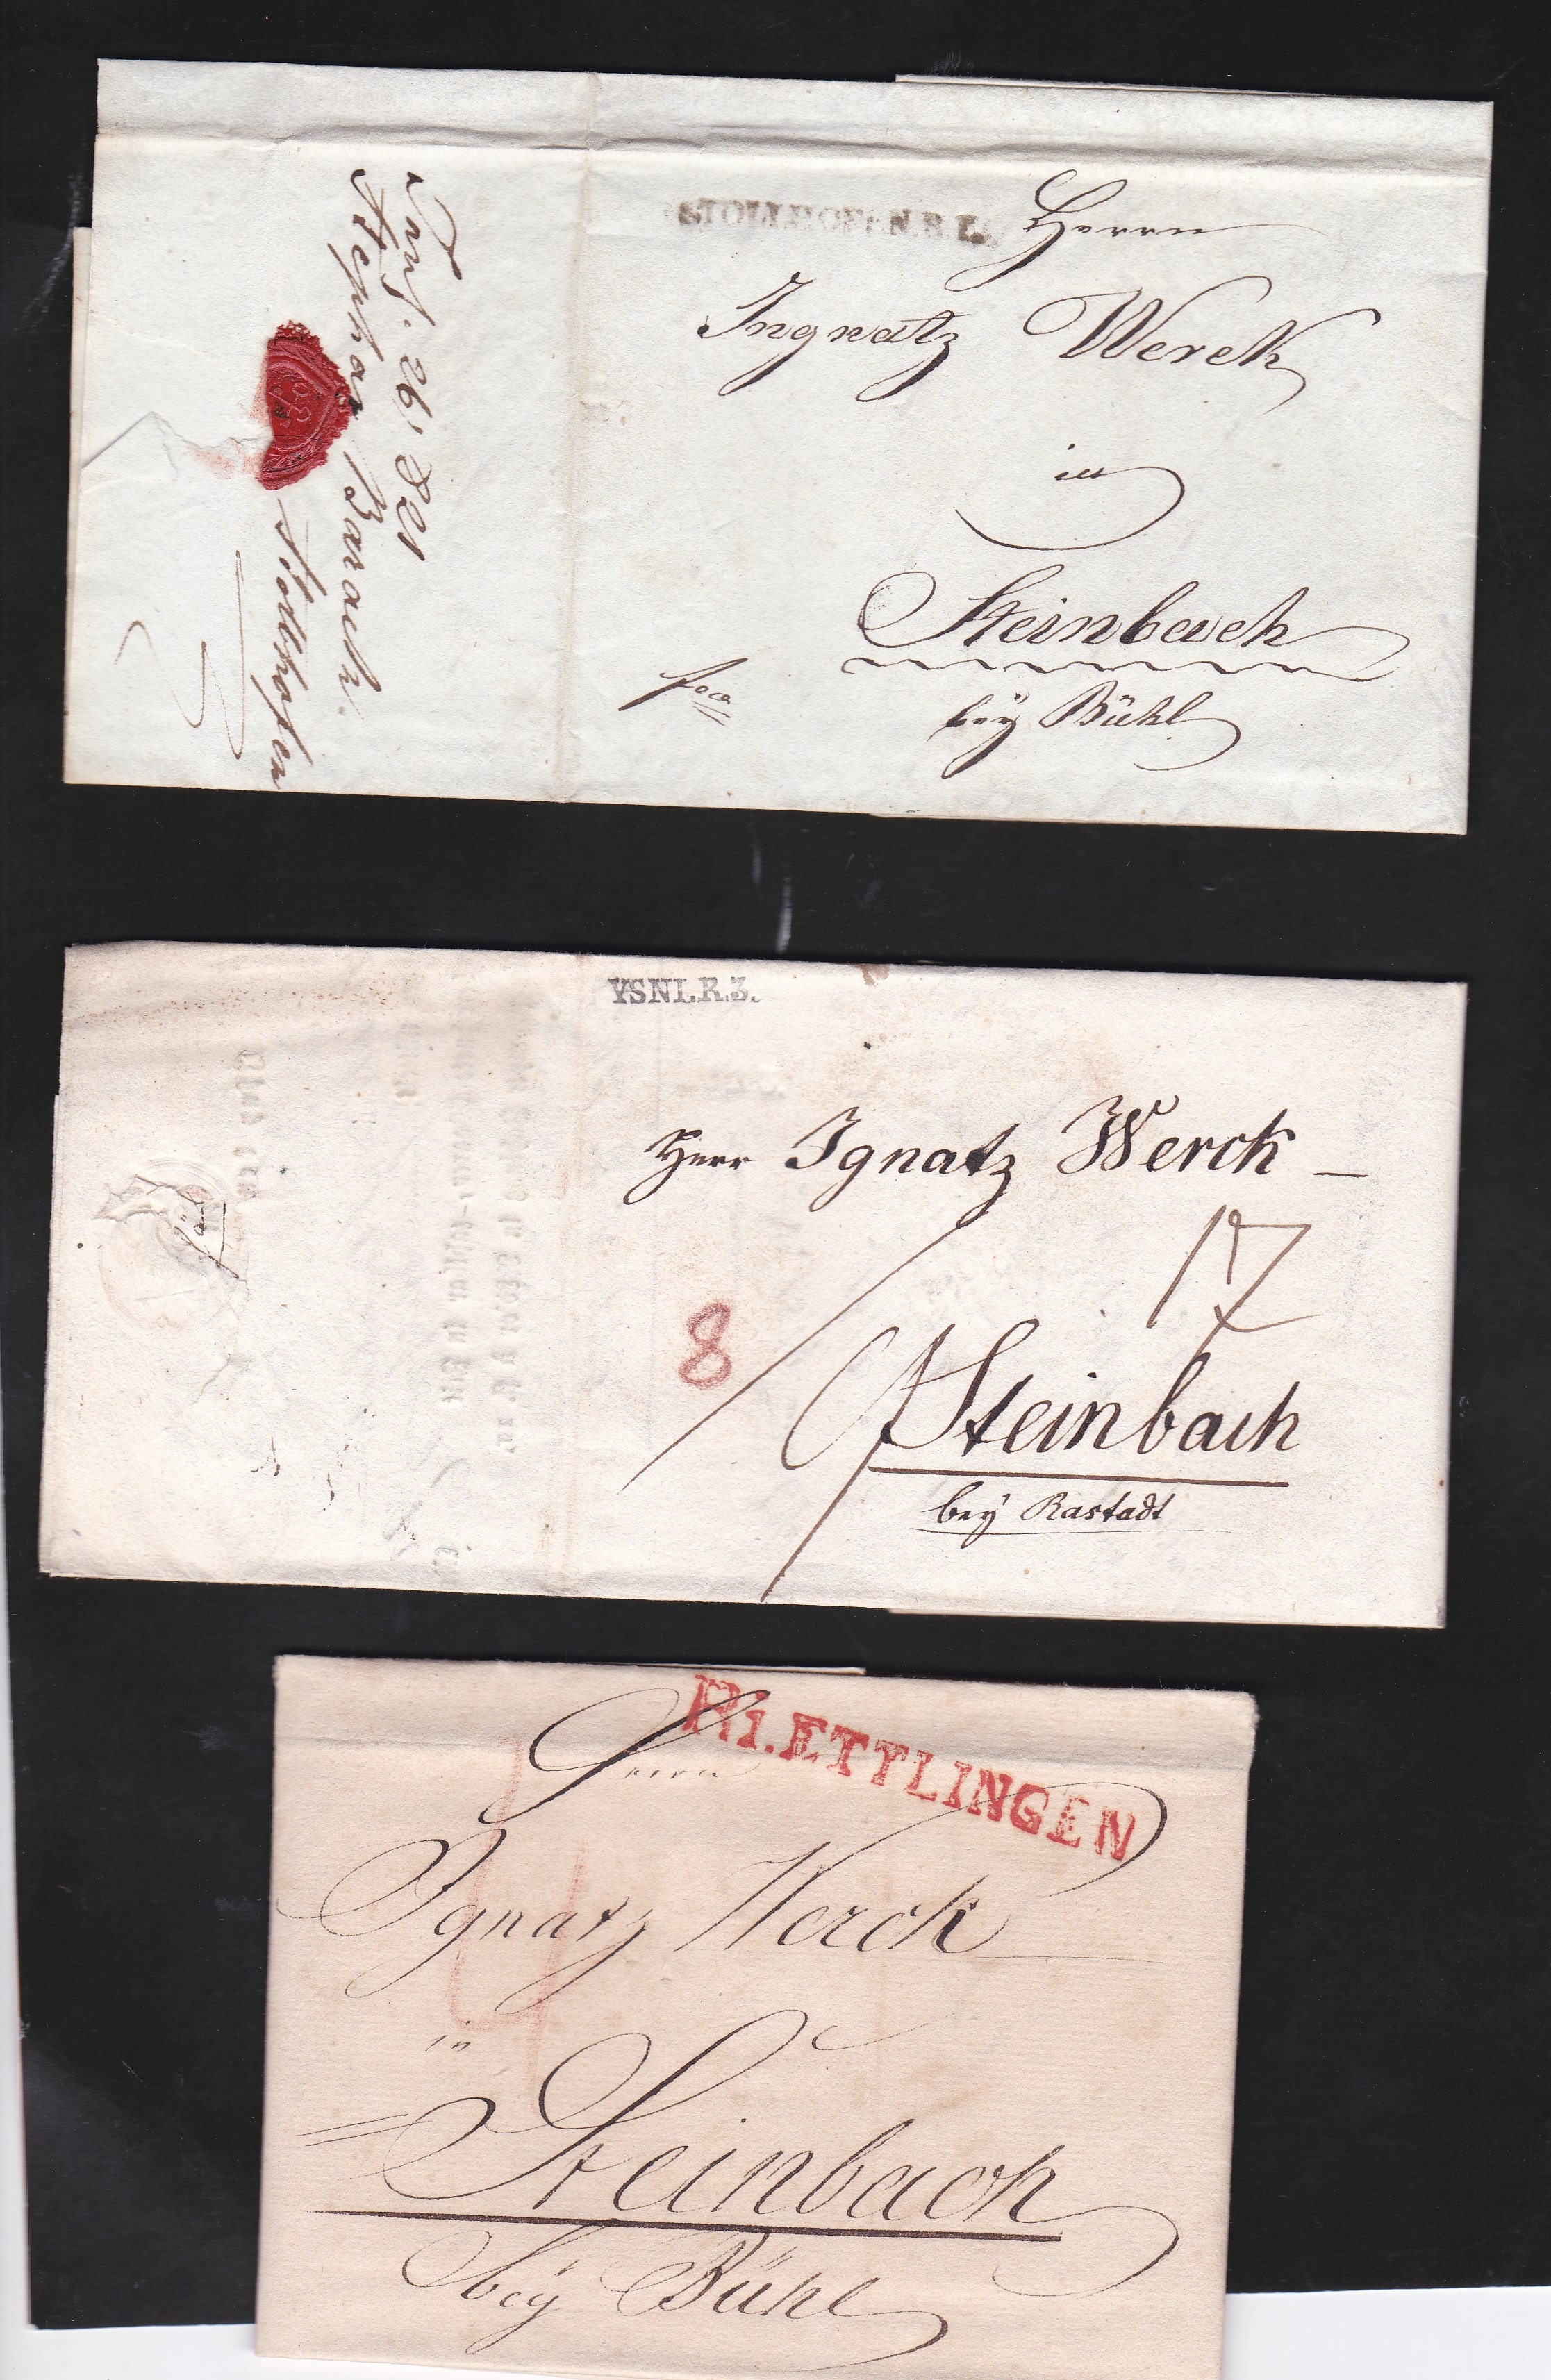 STOLLHOF:N.B.L.
Herrn
Ingnatz Werck
in
Steinbach
bey Bühl
fco
26. 821
Stephan Barack.
Stollhofen
VSNI.R.3.
Herr Ignatz Werck
17
8
Steinbach
bey Rastadt
R1.ETTLINGEN
Herrn
Ignatz Werck
4
in
Steinbach
bey Bühl